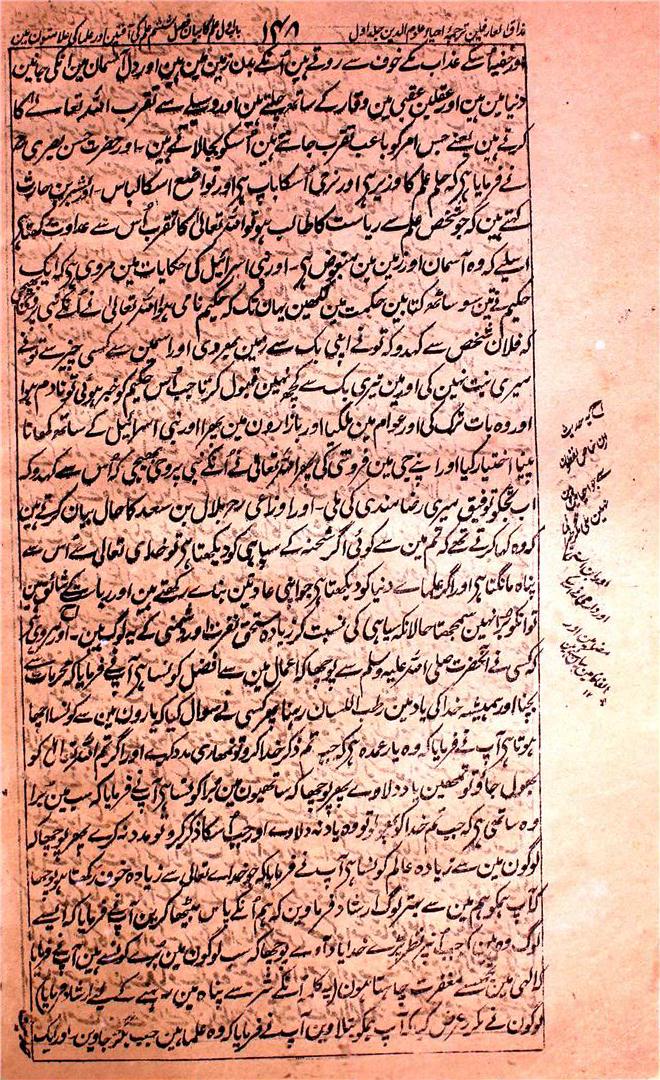 مذاق العارفین ترجمہ احیاء علوم الدین جلد اول
۱۴۸
باب اول علم کا بیان فصل ششم علم کی آفتین اور علما کی علامتون مین
اور خفیہ اسکے عذاب کے خوف سے روتے ہین اُنکے بدن زمین مین ہین اور دل آسمان مین اُنکی جانین
دنیا مین ہین اور عقلین عقبی مین وقار کے ساتھ چلتے ہین اور وسیلے سے تقرب اللہ تعالے کا
کرتے ہین یعنے جس امر کو باعث تقرب جانتے ہین اُسکو بجا لاتے ہین ۔ اور حضرت حسن بصری رح
نے فرمایا ہی کہ حلم علم کا وزیر ہی اور نرمی اُسکا باپ ہی اور تواضع اسکا لباس ۔ اور بشر بن حارث
کہتے ہین کہ جو شخص علم سے ریاست کا طالب ہو تو اللہ تعالیٰ کا تقرب اُس سے عداوت رکھتا ہی
اسلیے کہ وہ آسمان اور زمین مین مبغوض ہی ۔ اور بنی اسرائیل کی حکایات مین مروی ہی کہ ایک
حکیم نے تین سو ساٹھ کتابین حکمت مین لکھین یہان تک کہ حکیم نامی ہوا اللہ تعالیٰ نے اُنکے نبی پر
کہ فلان شخص سے کہدو کہ تونے اپنی بک سے زمین بھر دی اور اسمین سے کسی چیز سے تونے
میری نیت نہین کی اور مین تیری بک سے کچھ نہین قبول کرتا جب اُس حکیم کو خبر ہوئی تو نادم ہوا
اور وہ بات ترک کی اور عوام مین ملگیا اور بازارون مین پھرا اور بنی اسرائیل کے ساتھ کھانا
پینا اختیار کیا اور اپنے جی مین فروتنی کی پھر اللہ تعالیٰ نے اُنکے نبی پر وحی بھیجی کہ اُس سے کہدو کہ
اب تجکو توفیق میری رضا مندی کی ملی ۔ اور اوزاعی رح بلال بن سعد کا حال بیان کرتے ہین
کہ وہ کہا کرتے تھے کہ تم مین سے کوئی اگر شحنہ کے سپاہی کو دیکھتا ہی تو خدای تعالیٰ سے اُس سے
پناہ مانگتا ہی اور اگر علماے دنیا کو دیکھتا ہی جو اپنی عادتین بناے رکھتے ہین اور ریاست کے شائق ہین
تو انکو برا نہین سمجھتا حالانکہ سپاہی کی نسبت کر زیادہ مستحق نفرت اور دشمنی کے یہ لوگ ہین ۔ اور مروی ہی
کہ کسی نے آنحضرت صلی اللہ علیہ وسلم سے پوچھا کہ اعمال مین سے افضل کونسا ہی آپ نے فرمایا کہ محرمات سے
بچنا اور ہمیشہ خدا کی یاد مین رطب اللسان رہنا پھر کسی نے سوال کیا کہ یارون مین سے کونسا اچھا
ہوتا ہی آپ نے فرمایا کہ وہ یار عمدہ ہی کہ جب تم ذکر خدا کرو تو تمھاری مدد کرے اور اگر تم اللہ تعالیٰ کو
بھول جاؤ تو تمھین یاد دلاوے پھر پوچھا کہ ساتھیون مین بُرا کونسا ہی آپ نے فرمایا کہ سب مین بُرا
وہ ساتھی ہی کہ جب تم خدا کو بھولو تو وہ یاد نہ دلاوے اور جب اُسکا ذکر کرو تو مدد نہ کرے پھر پوچھا کہ
لوگون مین سے زیادہ عالم کونسا ہی آپ نے فرمایا کہ جو خداے تعالیٰ سے زیادہ خوف رکھتا ہو پوچھا
کہ آپ ہمکو ہم مین سے بہتر لوگ ارشاد فرماوین کہ ہم اُنکے پاس بیٹھا کرین آپ نے فرمایا کہ ایسے
لوگ وہ ہین کہ جب اُنپر نظر پڑے خدا یاد آوے پوچھا کہ سب لوگون مین بُرے کونسے ہین آپ نے فرمایا
کہ الٰہی مین تجھسے مغفرت چاہتا ہون (یہ کلمہ اُنکے شر سے پناہ مین رہنے کے لیے ارشاد فرمایا)
لوگون نے مکرر عرض کیا کہ آپ ہمکو بتلاوین آپ نے فرمایا کہ وہ علما ہین جب بگڑ جاوین ۔ اور ایک